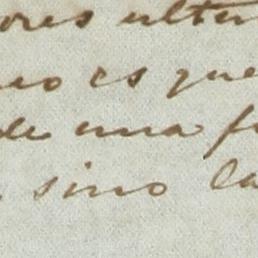 ores ulter
eo es que
de una f
, sino la